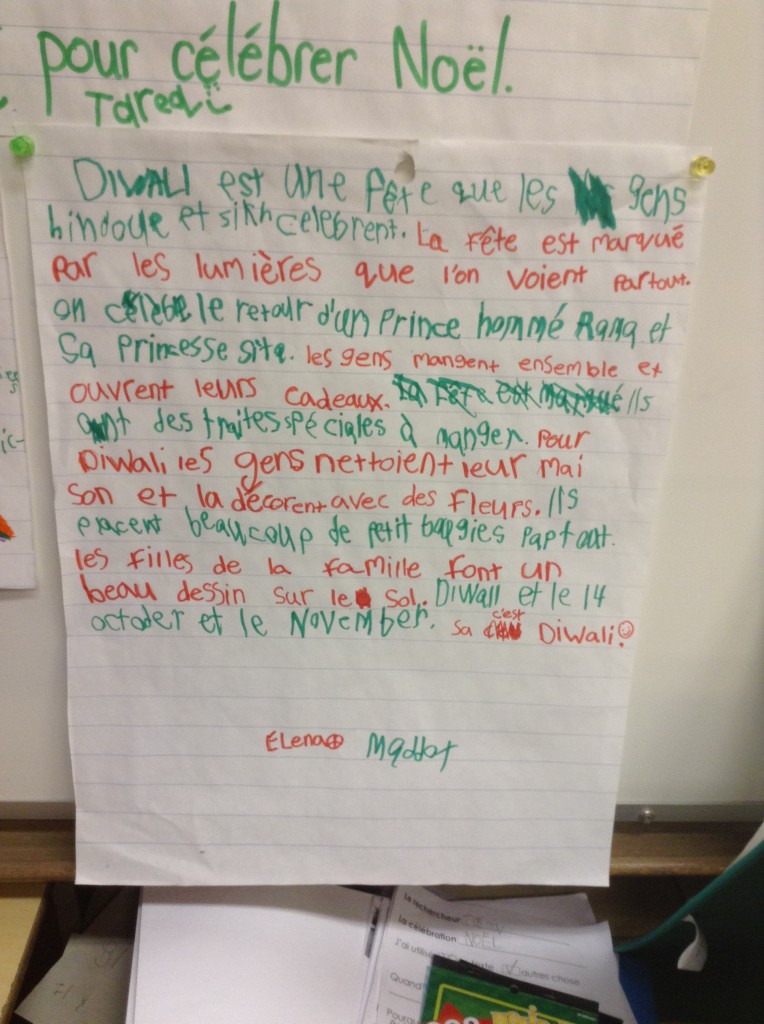 pour célébrer Noël.
Taredji
DIWALI est une fête que les gens
hindoue et sikh celebrent. La fête est marqué
par les lumières que l'on voient partout.
on célèbre le retour d'un Prince hommé Rama et
Sa Princesse sita. les gens mangent ensemble et
ouvrent leurs cadeaux. Ils
ont des traites spéciales à manger. Pour
Diwali les gens nettoient leur mai
son et la décorent avec des fleurs. Ils
placent beaucoup de petit bougies partout.
les filles de la famille font un
beau dessin sur le sol. Diwali et le 14
octoder et le NOVEMBER. sa c'est Diwali!
Elena Maddox
La recherche
La célébration NOËL
J'ai utilisé autres chose
Quand
Pourqu